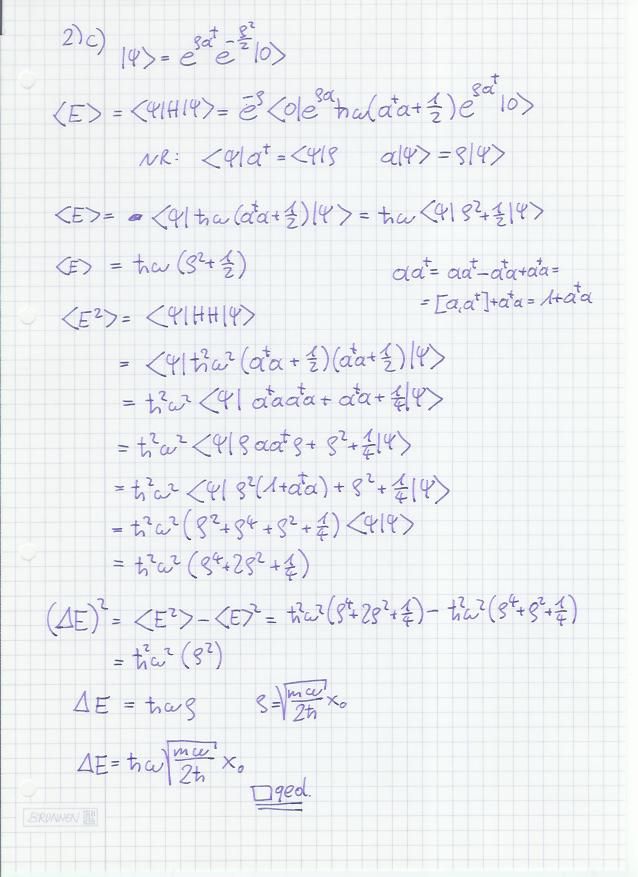 2) c) |ψ> = e^{ρa†} e^{-ρ²/2} |0>
<E> = <ψ|H|ψ> = e^{-ρ} <0|e^{ρa} ħω(a†a + 1/2) e^{ρa†} |0>
NR: <ψ|a† = <ψ|ρ a|ψ> = ρ|ψ>
<E> = <ψ|ħω(a†a + 1/2)|ψ> = ħω <ψ|ρ² + 1/2|ψ>
<E> = ħω (ρ² + 1/2)
aa† = aa† - a†a + a†a =
= [a,a†] + a†a = 1 + a†a
<E²> = <ψ|HH|ψ>
= <ψ|ħ²ω² (a†a + 1/2)(a†a + 1/2)|ψ>
= ħ²ω² <ψ| a†aa†a + a†a + 1/4|ψ>
= ħ²ω² <ψ|ρ aa†ρ + ρ² + 1/4|ψ>
= ħ²ω² <ψ|ρ²(1 + a†a) + ρ² + 1/4|ψ>
= ħ²ω² (ρ² + ρ⁴ + ρ² + 1/4) <ψ|ψ>
= ħ²ω² (ρ⁴ + 2ρ² + 1/4)
(ΔE)² = <E²> - <E>² = ħ²ω²(ρ⁴ + 2ρ² + 1/4) - ħ²ω²(ρ⁴ + ρ² + 1/4)
= ħ²ω² (ρ²)
ΔE = ħωρ ρ = √(mω/2ħ) x₀
ΔE = ħω √(mω/2ħ) x₀
□ qed.
BRUNNEN